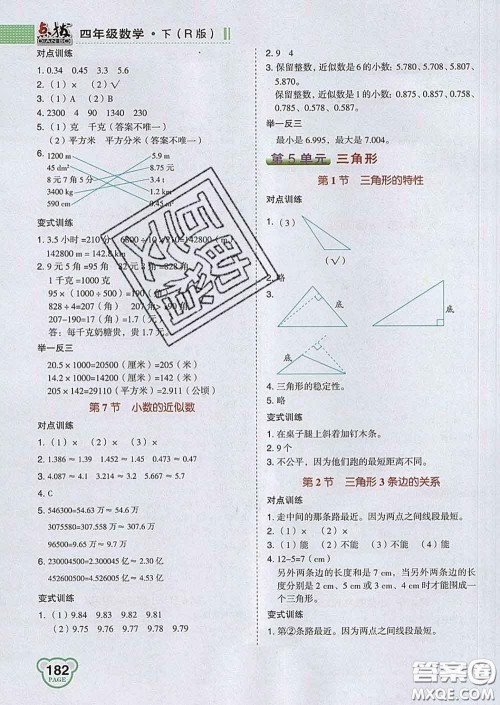 点拨 DIAN BO 四年级数学·下(R版)
对点训练
1. 0.34 0.45 3.3 5.6
2. (1)× (2)√
3. (1)A (2)B
4. 2300 4 90 1340 230
5. (1)克 千克(答案不唯一)
(2)平方米 平方分米(答案不唯一)
6. 1200 m 5.9 m
45 dm² 8.74元
8元7角5分 3.4 t
3400 kg 1.2 km
590 cm 0.45 m²
变式训练
1. 3.5小时=210分
142800 m=142.8 km
2. 9元5角=95角
828角
1千克=1000克
95×(1000÷500)=190(角)
828÷4=207(角) 207角>190角
207-190=17(角)=1.7(元)
答:每千克奶糖贵,贵1.7元。
举一反三
20.5×1000=20500(厘米)=205(米)
14.2×1000=14200(厘米)=142(米)
205×142=29110(平方米)=2.911(公顷)
第7节 小数的近似数
对点训练
1. (1)× (2)× (3)×
2. 0.386 1.45 1.452 0.45 1.23
3. 4.087≈4.1 3.212≈3.2 4.114≈4.1
4. C
5. 546300=54.63万≈54.6万
3075580=307.558万≈307.6万
4576500=457.65万≈457.7万
6. 230004500=2.300045亿≈2.30亿
452600500=4.526005亿≈4.53亿
变式训练
1. (1)9.84 9.83 9.82 9.81
(2)9.75 9.76 9.77 9.78 9.79
182
PAGE
2. 9 4
3. 保留整数,近似数是6的小数:5.780、5.708、5.870、5.807、5.078、5.087。
保留整数,近似数是1的小数:0.875、0.857、0.758、0.785、0.578、0.587。
举一反三
最小是6.995,最大是7.004。
第5单元 三角形
第1节 三角形的特性
对点训练
1. (3)
2. 略
3.
底
底
4. 三角形的稳定性。
5. 略
变式训练
1. 在桌子腿上斜着加钉木条。
2. 9个
3. 不公平,因为他们跑的最短距离不相等。
第2节 三角形3条边的关系
对点训练
1. 走中间的那条路最近。因为两点之间线段最短。
2. (1)能 (2)不能 (3)不能 (4)能
3. (1)能 (2)不能 (3)能
4. 12-5=7(cm)
另外两条边的长度和是7 cm,当另外两条边的长度分别是2 cm和5 cm或3 cm和4 cm时才能围成一个三角形。
变式训练
1. 第②条路最近。因为两点之间线段最短。
答案圈
MXQE.COM